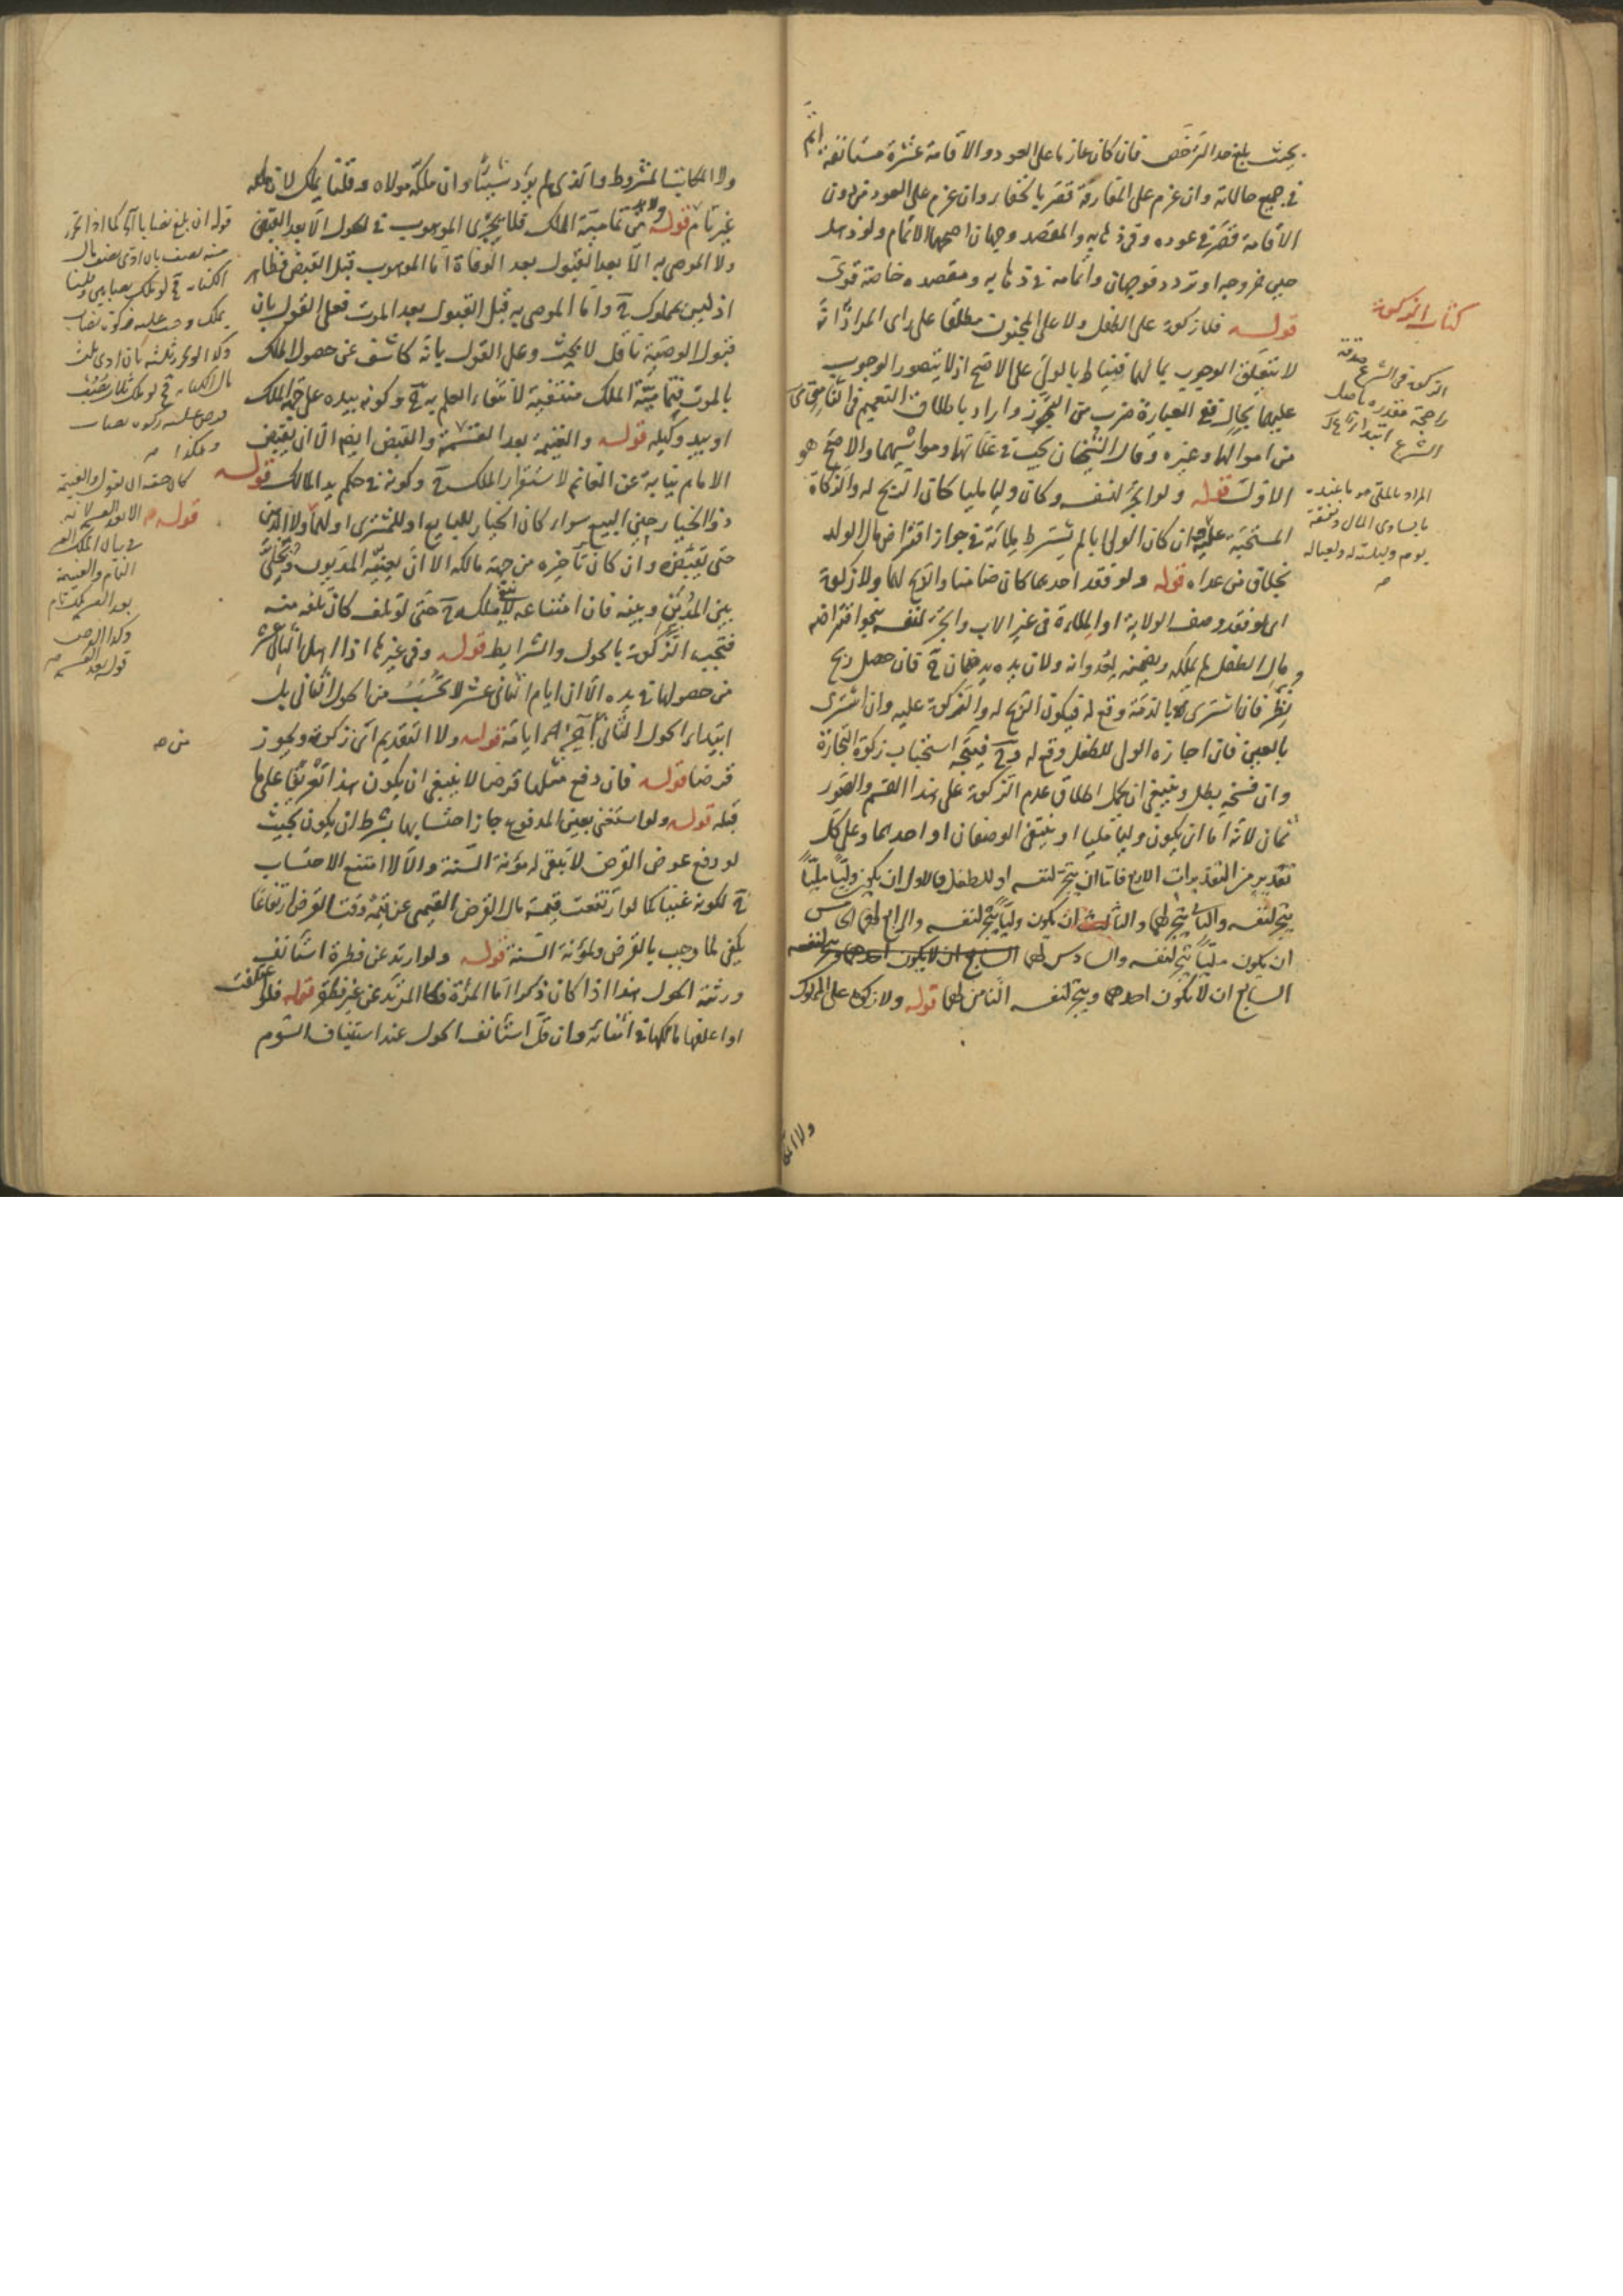 بحيث بلغ حد الترخص فان كان عازما على العود والاقامة عشرة مستانفة اتم
في جميع حالاته وان عزم على المفارقة قصر بالخفاء وان عزم على العود من دون
الاقامة قصر في عوده وفي ذهابه والمقصد وجهان اصحهما الاتمام ولو ذهل
حين خروجه او تردد فوجهان واتمامه في ذهابه ومقصده خاصة قوي
كتاب الزكوة
قوله فلا زكوة على الطفل ولا على المجنون مطلقا على راى المراد انه
لا يتعلق الوجوب بمالهما فيناط بالولي على الاصح اذ لا يتصور الوجوب
عليهما بحال ففي العبارة ضرب من التجوز واراد باطلاق التعميم في
من اموالهما وغيره وقال الشيخان يجب في غلاتهما ومواشيهما والاصح هو
الاول قوله ولو اتجر لنفسه وكان وليا مليا كان الربح له والزكاة
المستحبة عليه ان كان الولي ابا لم يشترط ملائته في جواز اقتراض مال الولد
بخلاف من عداه قوله ولو فقد احدهما كان ضامنا والربح لهما ولا زكوة
اى لو فقد وصف الولاية او الملاءة في غير الاب واتجر لنفسه بنحو اقتراضه
مال الطفل لم يملكه ويضمنه لعدوانه ولان يده يد ضمان ح فان حصل ربح
نظر فان اشترى بالذمة وقع له فيكون الربح له والزكوة عليه وان اشترى
بالعين فان اجازه الولي للطفل وقع له وح فيتجه استحباب زكوة التجارة
وان فسخه بطل وينبغي ان يحمل اطلاق عدم الزكوة على هذا القسم والصور
ثمان لانه اما ان يكون وليا مليا او ينتفي الوصفان او احدهما وعلى كل
تقدير من التقديرات الاربع فاما ان يتجر لنفسه او للطفل فالاول ان يكون وليا مليا
يتجر لنفسه والثاني يتجر لهما والثالث ان يكون وليا يتجر لنفسه والرابع لهما الخامس
ان يكون مليا يتجر لنفسه والسادس لهما
السابع ان لا يكون احدهما ويتجر لنفسه الثامن لهما قوله ولا زكوة على المملوك
الزكوة في الشرع صدقة
راجحة مقدرة باصل
الشرع ابتداء
المراد بالملي من عنده
ما يساوى المال ونفقة
يوم وليلة له ولعياله
ولا المكاتب المشروط والذى لم يؤد شيئا وان ملكه مولاه وقلنا يملك لان ملكه
غير تام قوله من تمامية الملك فلا يجرى الموهوب في الحول الا بعد القبض
ولا الموصى به الا بعد القبول بعد الوفاة اما الموهوب قبل القبض فظاهر
اذ ليس بمملوك ح واما الموصى به قبل القبول بعد الموت فعلى القول بان
قبول الوصية ناقل لا بحث وعلى القول بانه كاشف عن حصول الملك
بالموت فتمامية الملك منتفية لانتفاء العلم به ح وكونه بيده على جهة الملك
او بيد وكيله قوله والغنيمة بعد القسمة والقبض ايضا الا ان يقبض
الامام نيابة عن الغانم لاستقرار الملك ح وكونه في حكم يد المالك قوله
ذو الخيار حين البيع سواء كان الخيار للبايع او للمشترى او لهما ولا الدين
حتى يقبضه وان كان تاخيره من جهة مالكه الا ان يعينه المديون ويخلى
بين المدين وبينه فان امتناعه لا ينفي ملكه ح حتى لو تلف كان تلفه منه
فتجب الزكوة بالحول والشرايط قوله وفي غيرها اذا اهل الثاني عشر
من حصولها في يده الا ان ايام الثاني عشر لا تحسب من الحول الثاني بل
ابتداء الحول الثاني اخر ايامه قوله ولا التقديم اى زكوة ويجوز
قرضا قوله فان دفع مثلها قرضا لا ينبغي ان يكون هذا تفريعا على ما
قبله قوله ولو استغنى بعين المدفوع جاز احتسابها بشرط ان يكون بحيث
لو دفع عوض القرض لا يبقى له مؤنة السنة والا لا امتنع الاحتساب
ح لكونه غنيا كما لو ارتفعت قيمة مال القرض القيمي عن قيمة وقت القرض ارتفاعا
يكفي لما وجب بالقرض ولمؤنة السنة قوله ولو ارتد عن فطرة استانف
ورثته الحول هذا اذا كان ذكرا اما المرئة فكالمرتد عن غير فطرة قوله فلو اعتلفت
او اعلفها مالكها في اثنائه وان قل استانف الحول عند استيناف السوم
قوله ان بلغ نصابا كما اذا تحرر
منه نصف بان ادى نصف مال
الكتابة
يملك وجب عليه زكوة نصاب
وكذا لو تحرر ثلثه بان ادى ثلث
وهكذا
قوله
النام والغنيمة
وكذا القرض